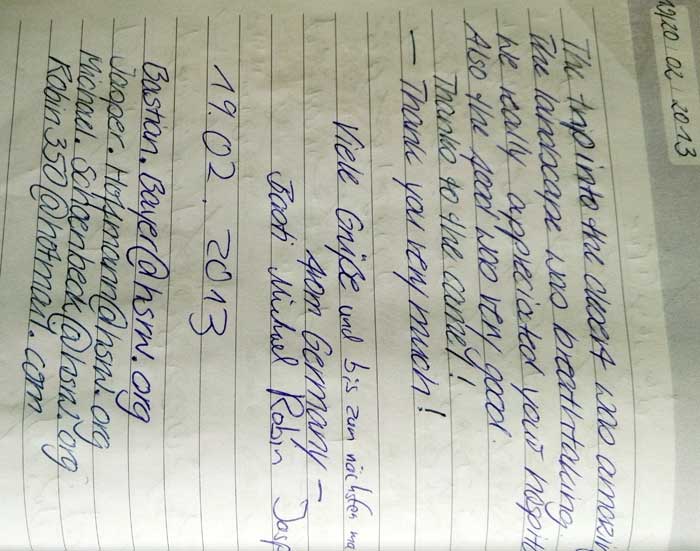 19/20 02 2013
The trip into the desert was amazin
The landscape was breathtaking
We really appreciated your hospit
Also the food was very good.
Thanks to the camel!
– Thank you very much!
Viele Grüße und bis zum nächsten ma
from Germany –
Basti Michael Robin Jasp
19.02.2013
Bastian.Bayer@hsmv.org
Jasper.@hsmv.org
Michael.Schoenbeck@hsmv.org
Robin350@hotmail.com